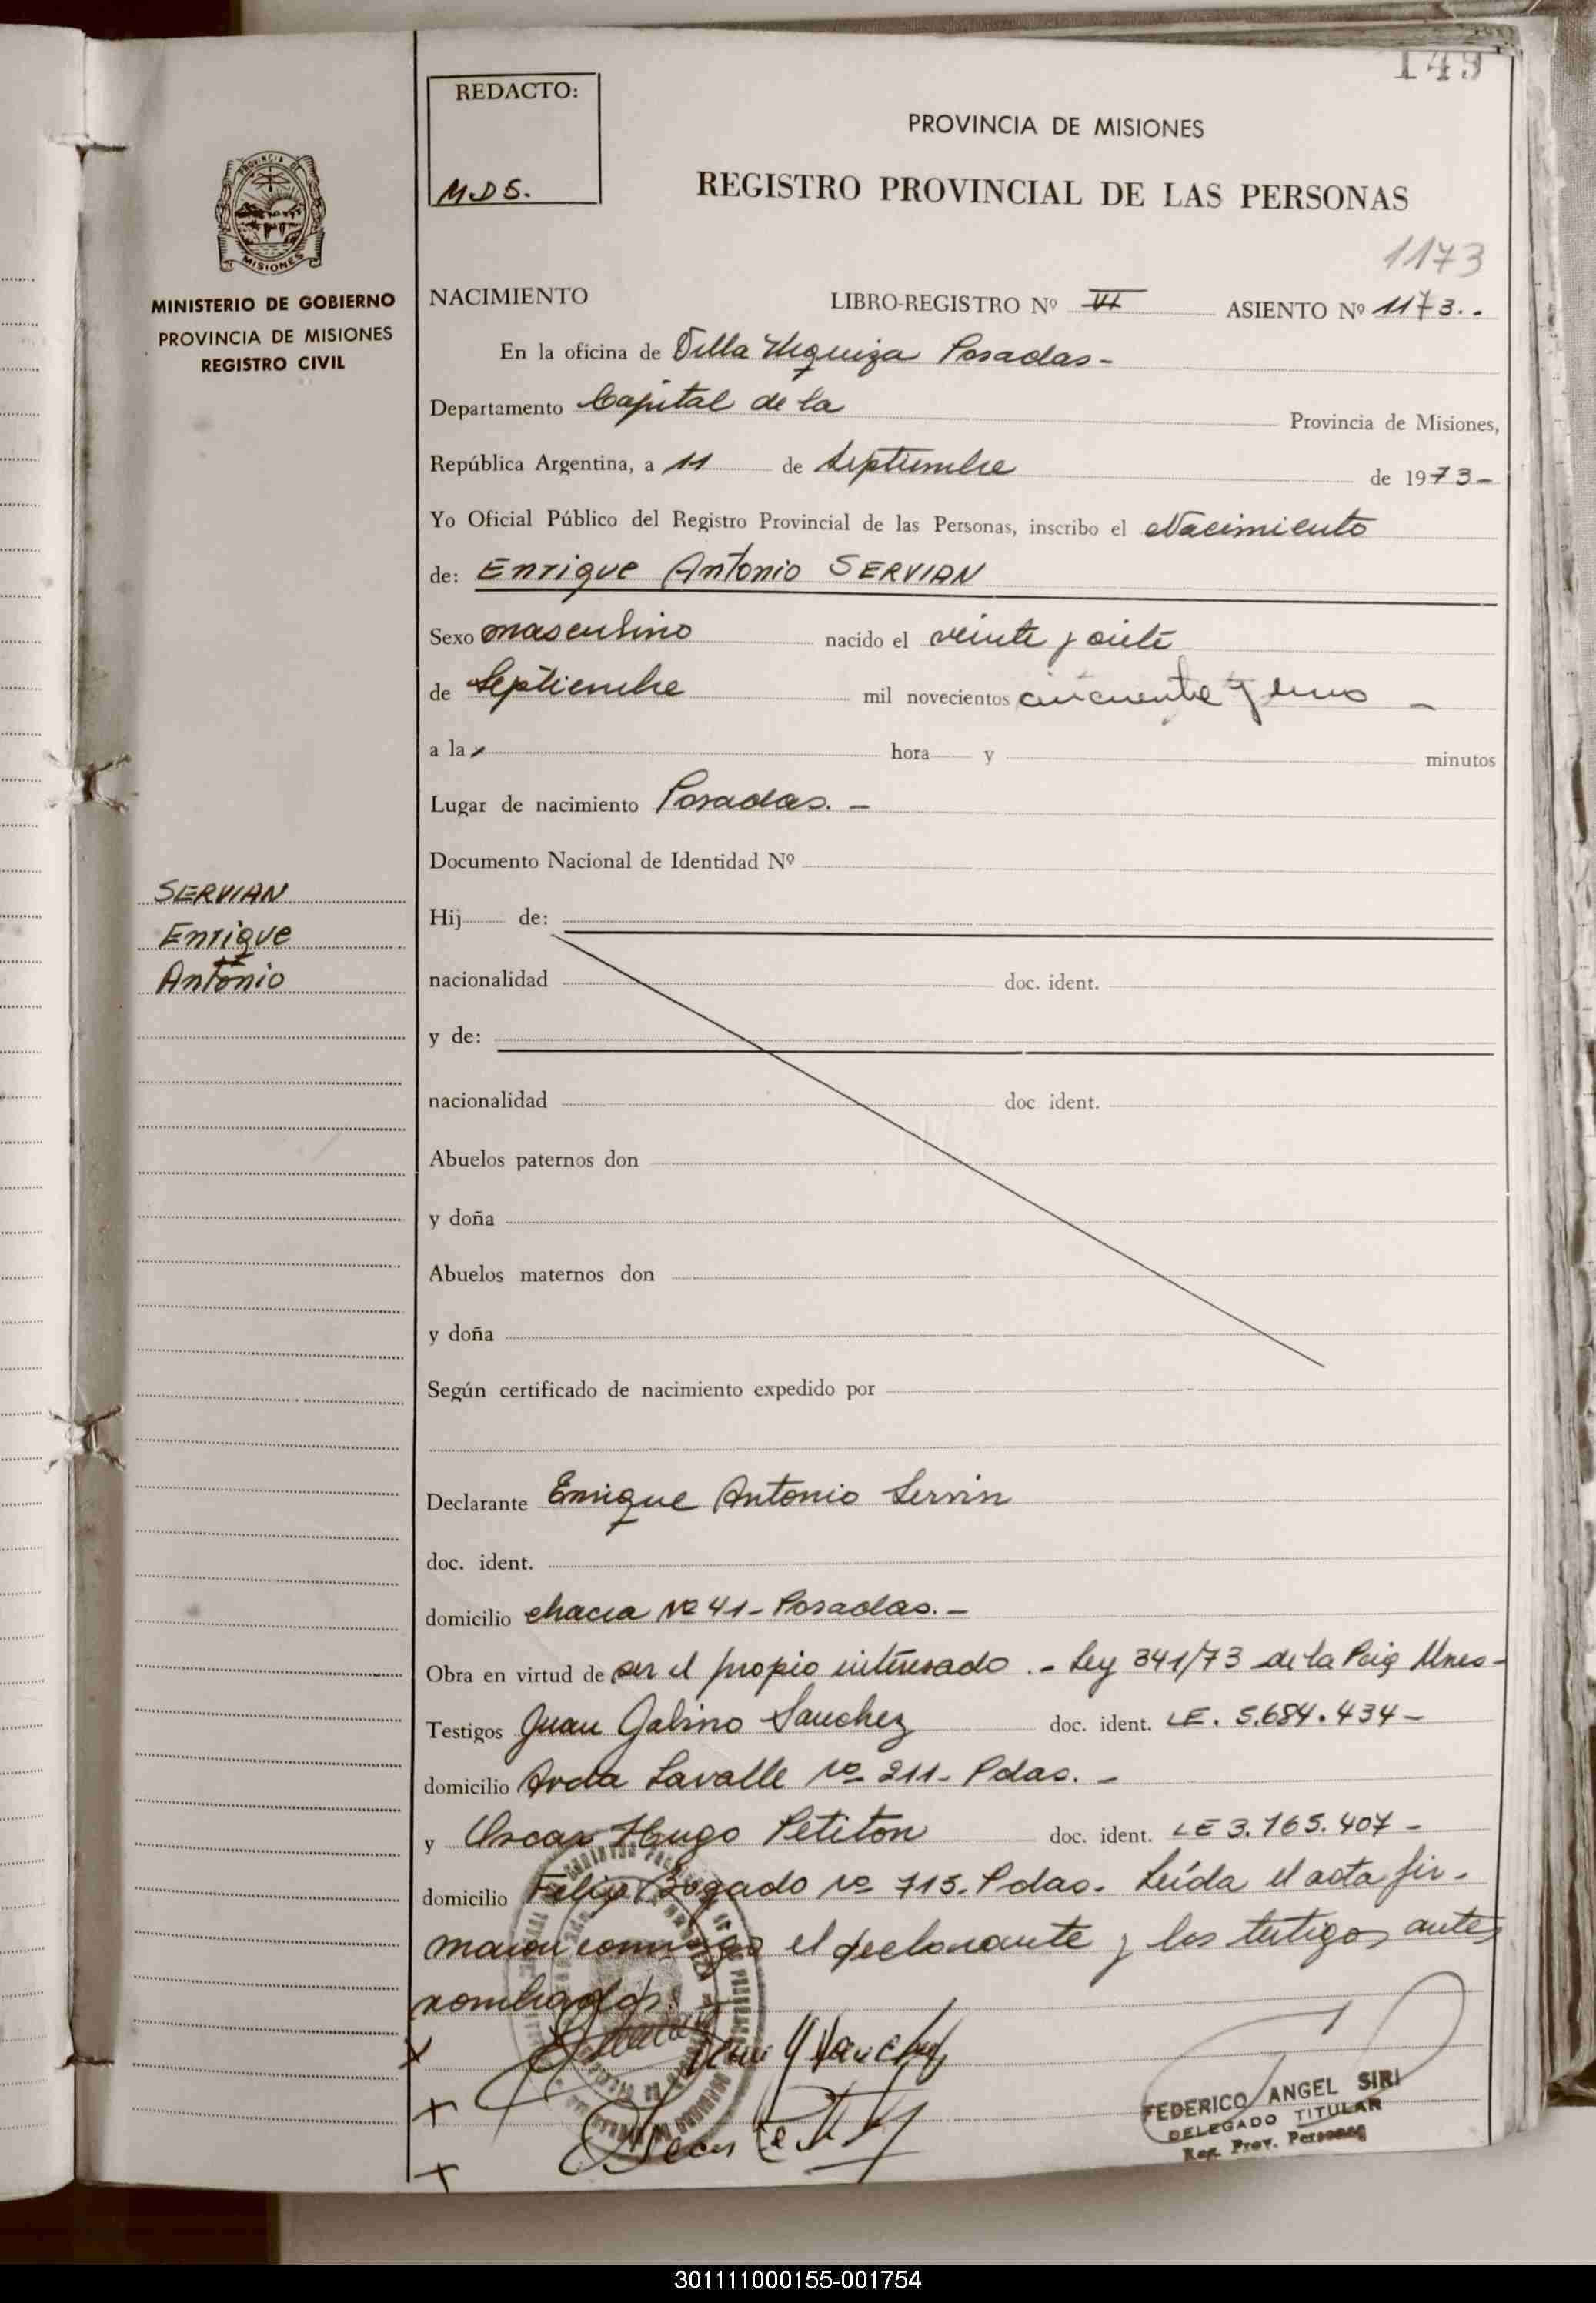 149
REDACTO:
M.D.S.
PROVINCIA DE MISIONES
REGISTRO PROVINCIAL DE LAS PERSONAS
1173
PROVINCIA DE
MISIONES
MINISTERIO DE GOBIERNO
PROVINCIA DE MISIONES
REGISTRO CIVIL
NACIMIENTO LIBRO-REGISTRO Nº VI ASIENTO Nº 1173..
En la oficina de Villa Urquiza Posadas-
Departamento Capital de la Provincia de Misiones,
República Argentina, a 11 de Septiembre de 1973-
Yo Oficial Público del Registro Provincial de las Personas, inscribo el Nacimiento
de: Enrique Antonio SERVIAN
Sexo masculino nacido el veinte y siete
de Septiembre mil novecientos cincuenta y uno -
a la hora y minutos
Lugar de nacimiento Posadas. -
Documento Nacional de Identidad Nº
SERVIAN
Enrique
Antonio
Hij de:
nacionalidad doc. ident.
y de:
nacionalidad doc ident.
Abuelos paternos don
y doña
Abuelos maternos don
y doña
Según certificado de nacimiento expedido por
Declarante Enrique Antonio
doc. ident.
domicilio chacra Nº 41- Posadas. -
Obra en virtud de ser el propio interesado .- Ley 341/73 de la
Testigos Juan Galino Sanchez doc. ident. LE. 5.684.434-
domicilio Avda Lavalle Nº 211- Pdas. -
y Oscar Hugo Petiton doc. ident. LE 3.165.407 -
domicilio Felix Bogado Nº 715. Pdas. Leída el acta fir-
maron conmigo el declarante y los testigos antes
nombrados
FEDERICO ANGEL SIRI
DELEGADO TITULAR
Reg. Prov. Personas
301111000155-001754